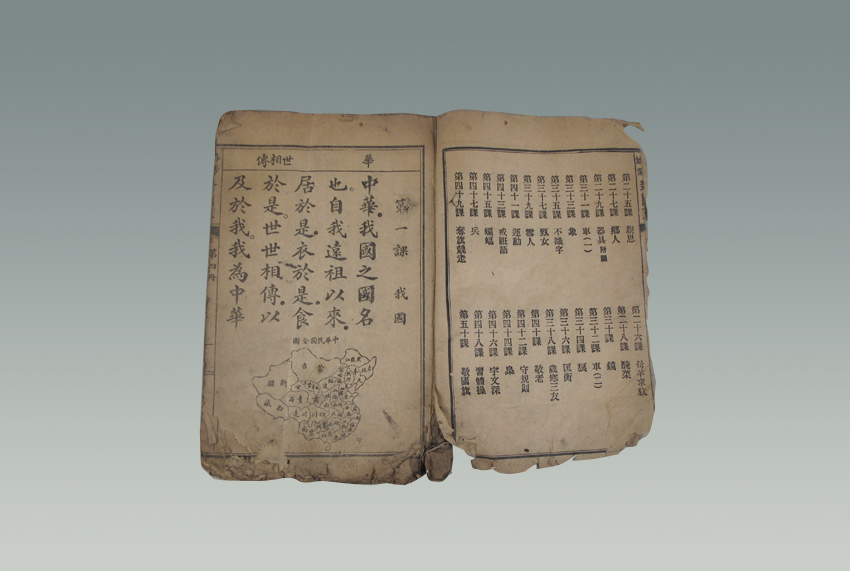 第二十五課 親恩
第二十七課 鄉人
第二十九課 器具 附圖
第三十一課 車(一)
第三十三課 象
第三十五課 不識字
第三十七課 甄女
第三十九課 雪人
第四十一課 運動
第四十三課 戒誑語
第四十五課 蝙蝠
第四十七課 兵
第四十九課 奪旗競走
第二十六課 母羊求救
第二十八課
第三十課 鏡
第三十二課 車(二)
第三十四課
第三十六課 匡衡
第三十八課 歲寒三友
第四十課 敬老
第四十二課 守規則
第四十四課
第四十六課 宇文深
第四十八課 習體操
第五十課 敬國旗
華
世相傳
第一課 我國
中華我國之國名
也自我遠祖以來
居於是衣於是食
於是世世相傳以
及於我我為中華
中華民國全圖
蒙古
新疆
西藏
青海
四川
第四冊